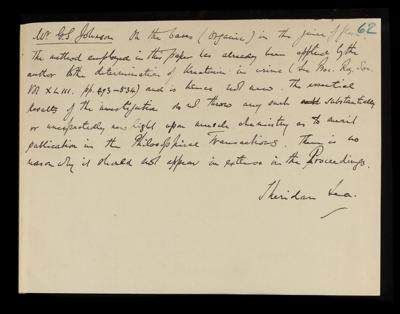 Mr G.S. Johnson On the bases (organic) in the juice of flesh. 62
The method employed in this paper has already been applied by the
author to the determination of Kreatinin in urine (See Proc. Roy. Soc.
Vol XLIII. pp. 493-534) and is hence not new. The essential
results of the investigation do not throw any such substantially
or unexpectedly new light upon muscle chemistry as to merit
publication in the Philosophical Transactions. There is no
reason why it should not appear in extenso in the Proceedings.
Sheridan Lea.